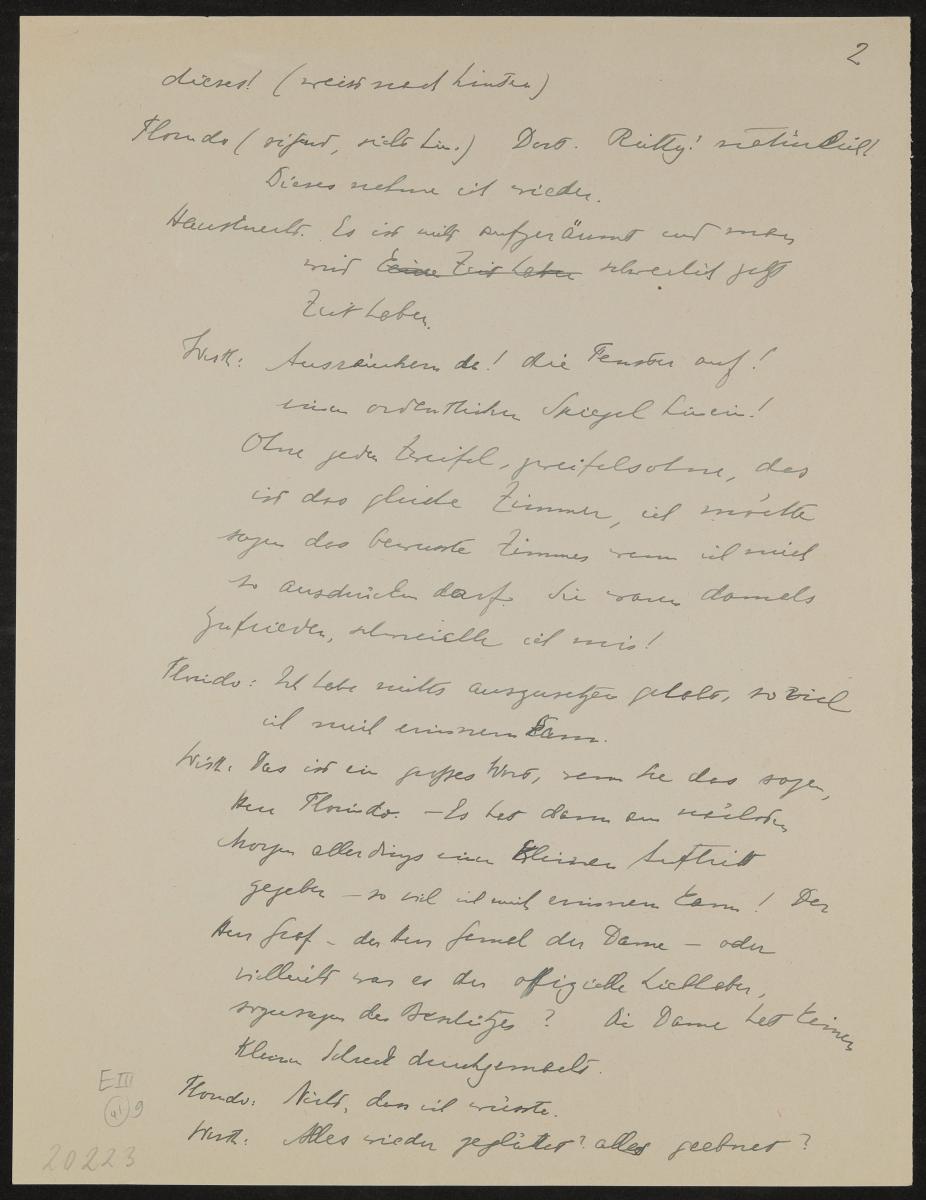 2
dieses! (weist nach hinten)
Florindo (zögernd, sieht hin.) Dort. Richtig! natürlich!
Dieses nehme ich wieder.
Hausknecht. Es ist nicht aufgeräumt und man
wird keine Zeit haben schwerlich jetzt
Zeit haben.
Wirth: Ausräuchern da! die Fenster auf!
einen ordentlichen Spiegel hinein!
Ohne jeden Zweifel, zweifelsohne, das
ist das gleiche Zimmer, ich möchte
sagen das bewusste Zimmer wenn ich mich
so ausdrücken darf. Sie waren damals
zufrieden, schmeichle ich mir!
Florindo: Ich habe nichts auszusetzen gehabt, so viel
ich mich erinnern kann.
Wirth. Das ist ein grosses Wort, wenn Sie das sagen,
Herr Florindo. – Es hat dann am nächsten
Morgen allerdings einen kleinen Auftritt
gegeben – so viel ich mich erinnern kann! Der
Herr Graf – der Herr Gemal der Dame – oder
vielleicht war es der offizielle Liebhaber,
sozusagen der Beschützer? Die Dame hat keinen
kleinen Schreck durchgemacht.
Florindo: Nicht, dass ich wüsste.
Wirth: Alles wieder geglättet? alles geebnet?
E III
41 9
20223